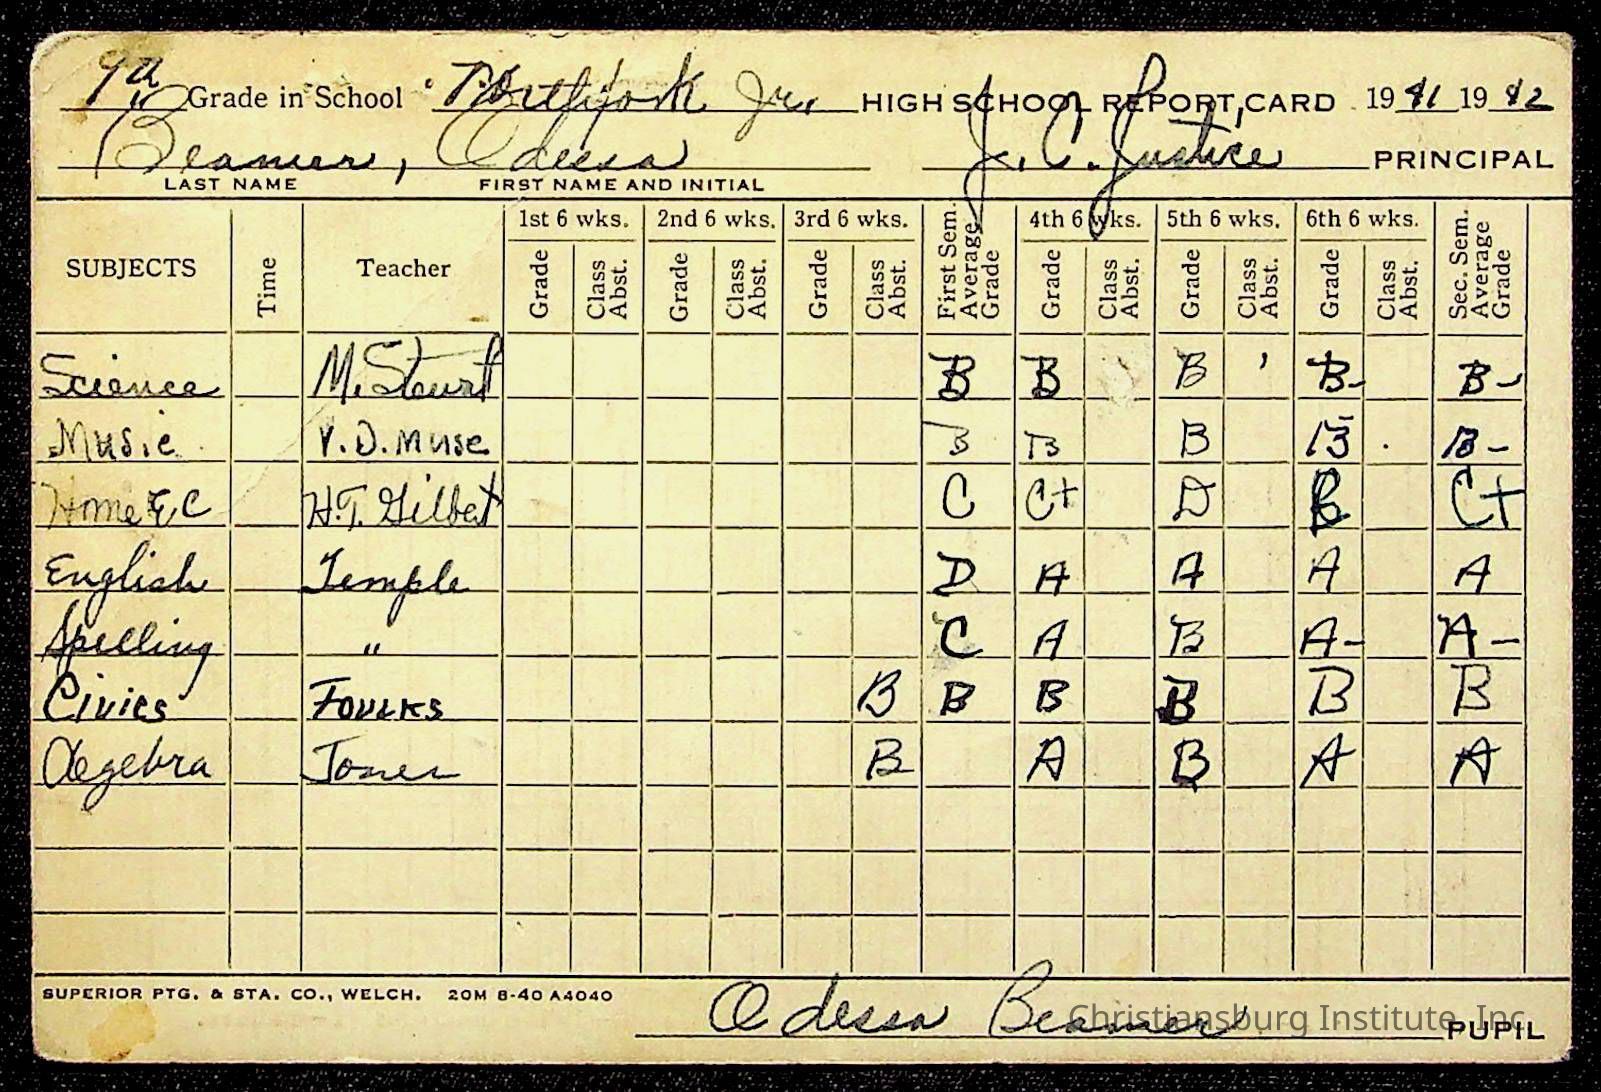 9th Grade in School Northfork Jr. HIGH SCHOOL REPORT CARD 19 41 19 42
Beamer, Odessa J. C. Justice PRINCIPAL
LAST NAME FIRST NAME AND INITIAL
1st 6 wks. 2nd 6 wks. 3rd 6 wks. First Sem. Average Grade 4th 6 wks. 5th 6 wks. 6th 6 wks. Sec. Sem. Average Grade
SUBJECTS Time Teacher Grade Class Abst. Grade Class Abst. Grade Class Abst. Grade Class Abst. Grade Class Abst. Grade Class Abst.
Science M. Stewart B B B ' B- B-
Music V. D. Muse B B B B- B-
Home EC H.T. Gilbert C C+ D B C+
English Temple D A A A A
Spelling " C A B A- A-
Civics Foulks B B B B B B
Algebra Jones B A B A A
SUPERIOR PTG. & STA. CO., WELCH. 20M 8-40 A4040
Odessa Beamer PUPIL
Christiansburg Institute, Inc.